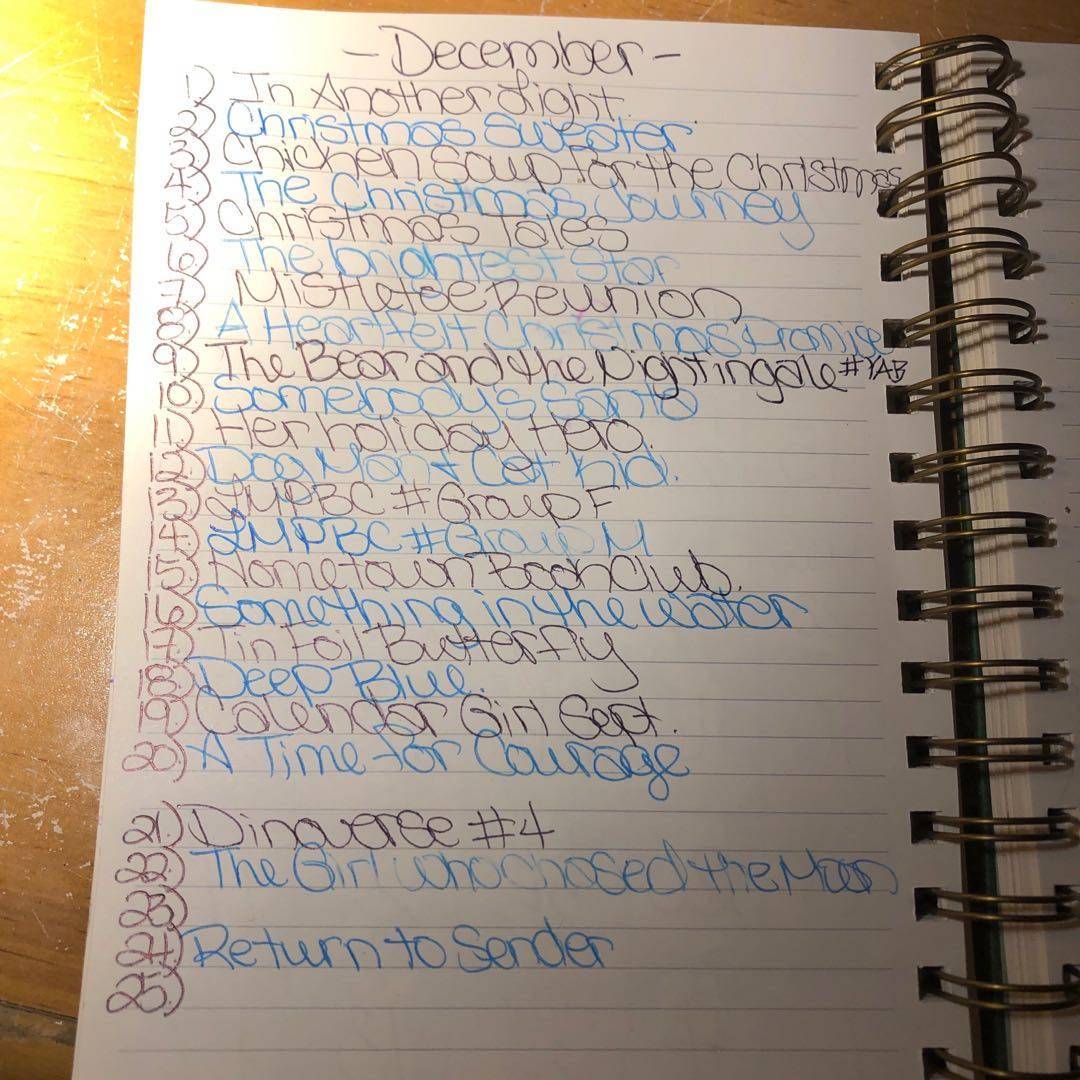 - December -
1) In Another Light.
2) Christmas Sweater
3) Chicken Soup for the Christmas
4.) The Christmas Journey
5) Christmas Tales
6) The brightest Star
7.) Mistletoe Reunion
8) A Heartfelt Christmas Promise
9.) The Bear and the Nightingale #YAB
10) Somebody's Santa
11) Her holiday Hero.
12) Dog Man + Cat Kid.
13) LMPBC #Group F
14) LMPBC #Group M
15) Hometown Book Club.
16) Something in the water
17) Tinfoil Butterfly
18) Deep Blue.
19) Calendar Girl Sept.
20.) A Time for Courage
21.) Dinoverse #4
22.) The Girl who chased the Moon
23.)
24.) Return to Sender
25.)